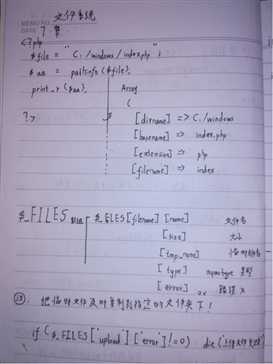 文件系统
MEMO NO.
DATE
7. 第
<?php
$file = "C:/windows/index.php";
$aa = pathinfo($file);
print_r($aa);
Array
(
?>
[dirname] => C:/windows
[basename] => index.php
[extension] => php
[filename] => index
$_FILES 数组
$_FILES[filename] [name] 文件名
[size] 大小
[tmp_name] 临时
[type] 类型
[error]
把临时文件及时复制到指定的文件夹下!
if ($_FILES['upload']['error'] != 0) die(上传文件